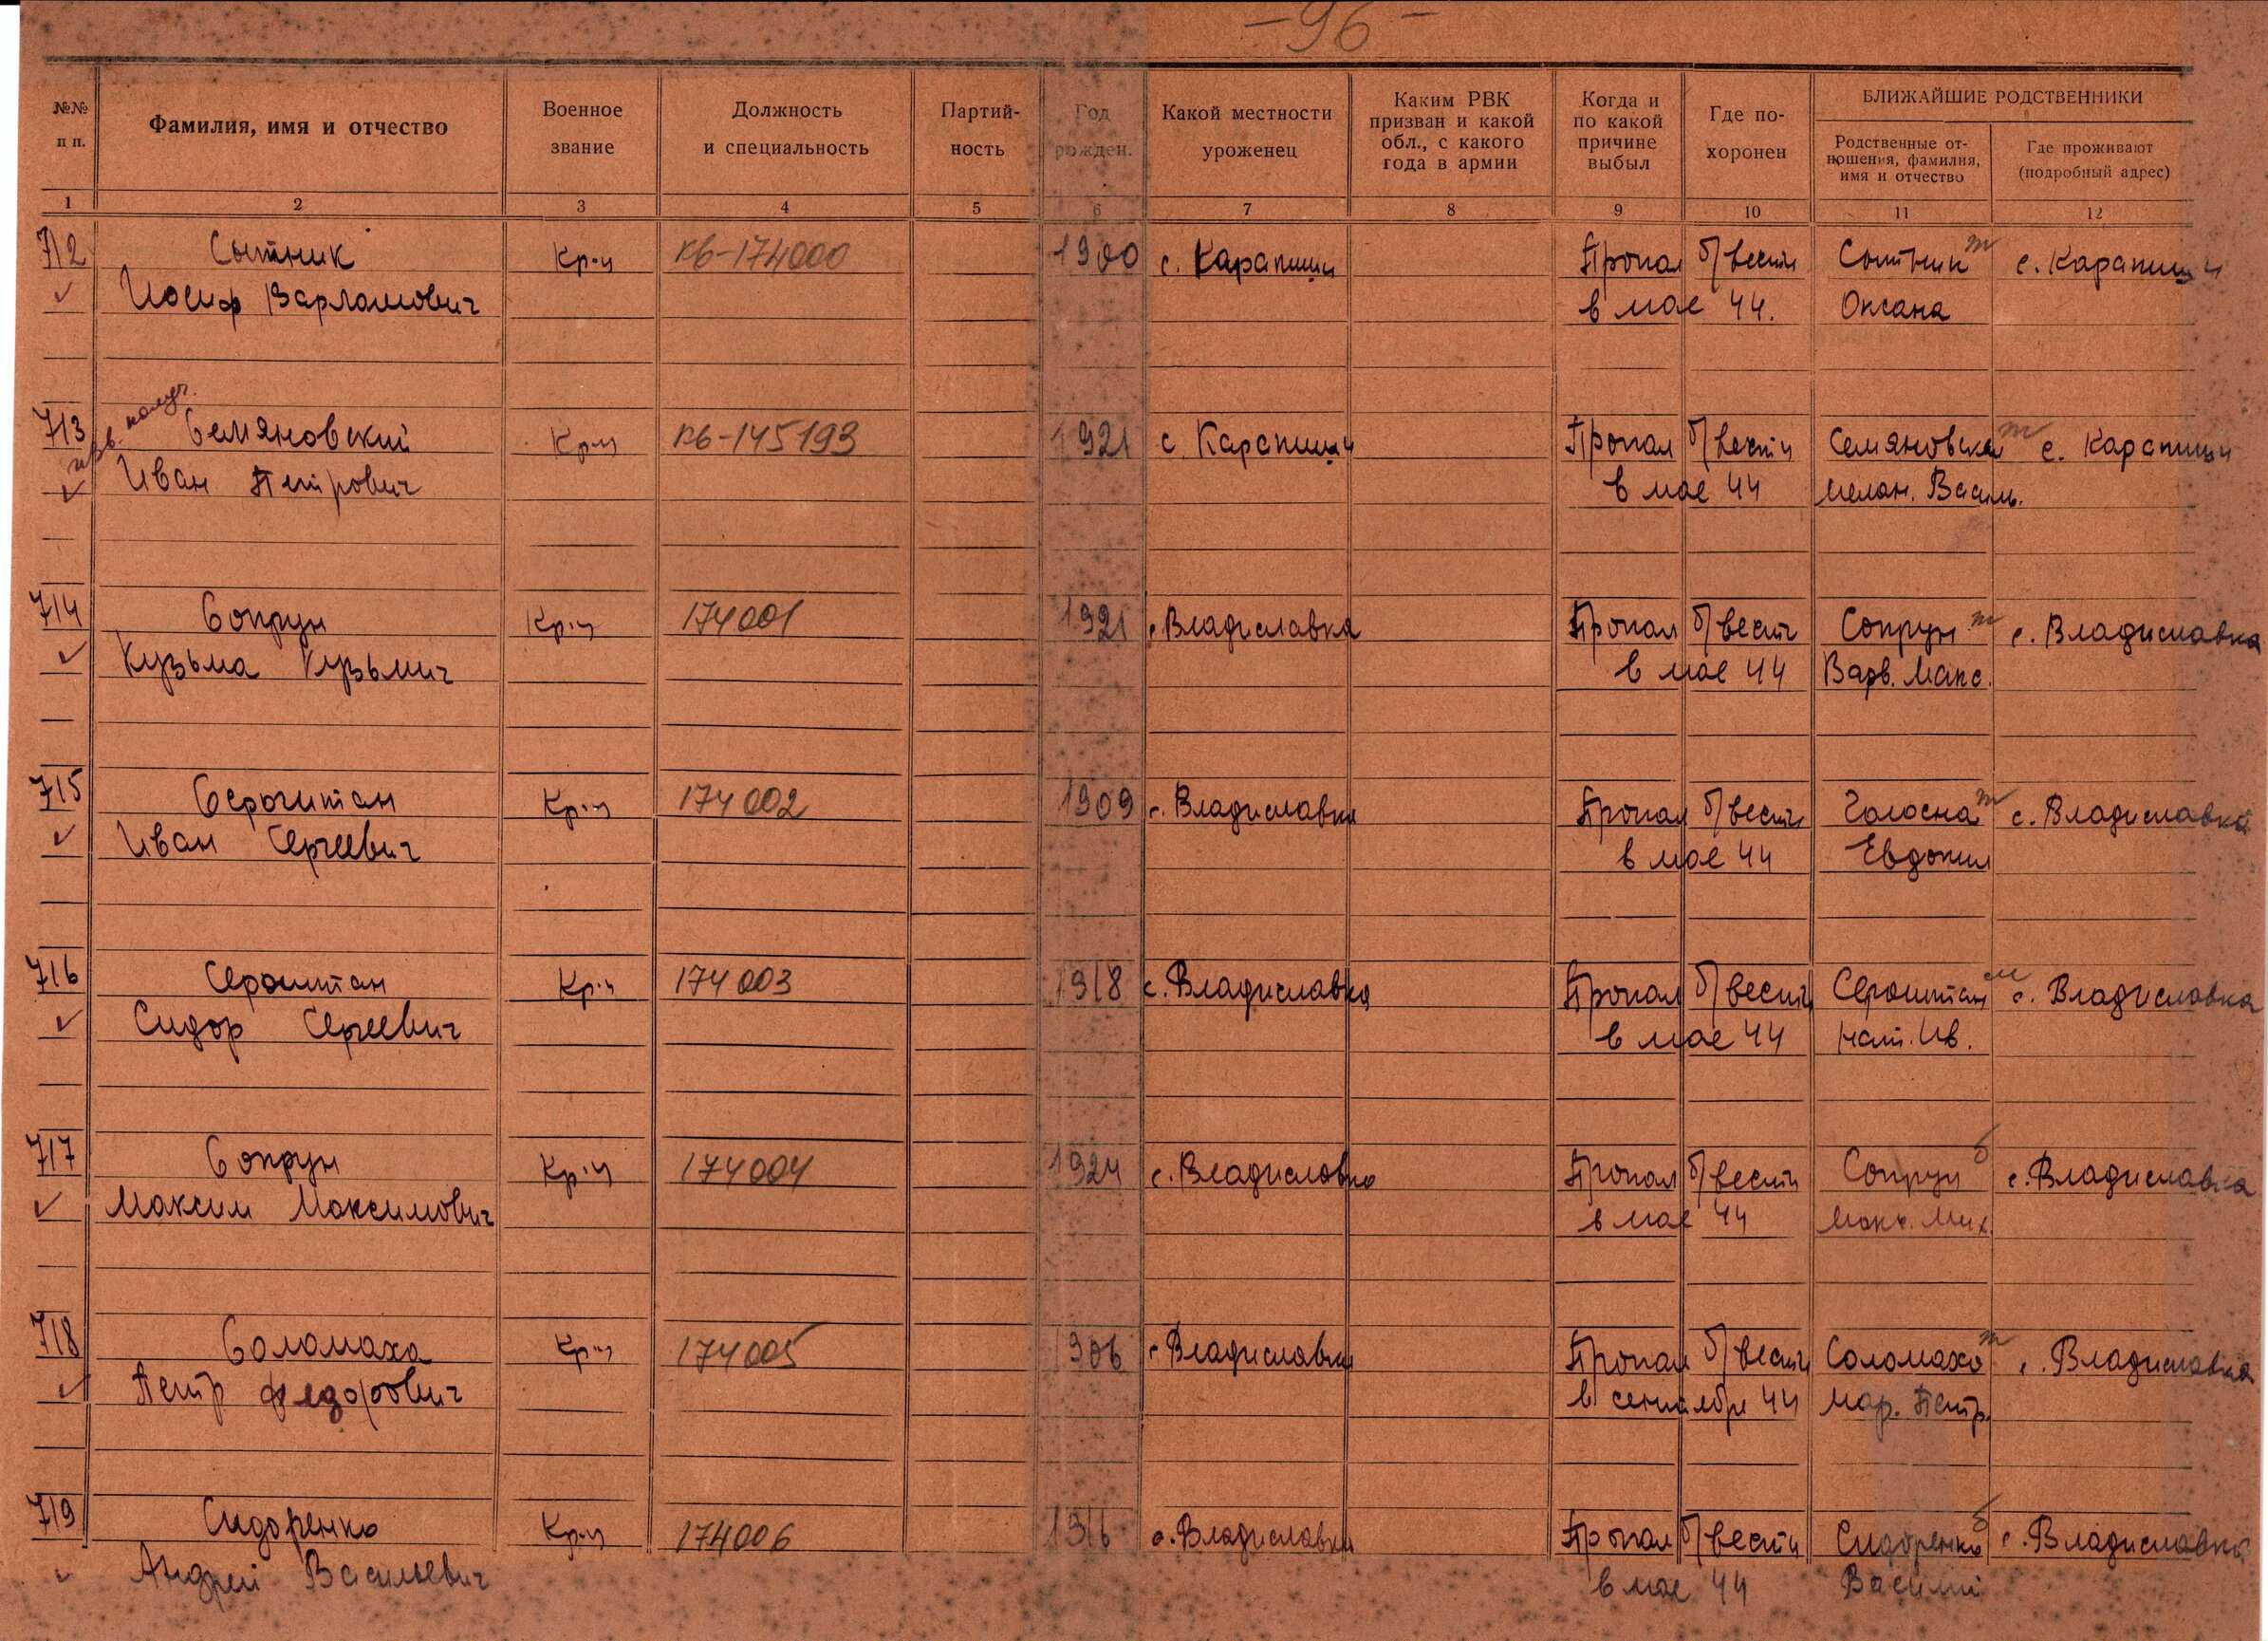 -96-
№№ п п.
Фамилия, имя и отчество
Военное звание
Должность и специальность
Партий- ность
Год рожден.
Какой местности уроженец
Каким РВК призван и какой обл., с какого года в армии
Когда и по какой причине выбыл
Где по- хоронен
БЛИЖАЙШИЕ РОДСТВЕННИКИ
Родственные от- ношения, фамилия, имя и отчество
Где проживают (подробный адрес)
1 2 3 4 5 6 7 8 9 10 11 12
712 Сытник Кр-ц КВ-174000 1900 с. Карапиши Пропал б/вести Сытник ж с. Карапиши
Иосиф Варламович в мае 44. Оксана
713 Семяновский Кр-ц КВ-145193 1921 с. Карапиши Пропал б/вести Семяновская с. Карапиши
Иван Петрович в мае 44 Мелан. Василь.
714 Сопрун Кр-ц 174001 1921 с. Владиславка Пропал б/вести Сопрун с. Владиславка
Кузьма Кузьмич в мае 44 Варв. Макс.
715 Кр-ц 174002 1909 с. Владиславка Пропал б/вести с. Владиславка
Иван Сергеевич в мае 44 Евдокия
716 Сероштан Кр-ц 174003 1918 с. Владиславка Пропал б/вести Сероштан м с. Владиславка
Сидор Сергеевич в мае 44 Нат. Ив.
717 Сопрун Кр-ц 174004 1924 с. Владиславка Пропал б/вести Сопрун с. Владиславка
Максим Максимович в мае 44 Мих.
718 Соломаха Кр-ц 174005 1906 с. Владиславка Пропал б/вести Соломаха с. Владиславка
Петр Федорович в сентябре 44 Мар. Петр.
719 Сидоренко Кр-ц 174006 1916 с. Владиславка Пропал б/вести Сидоренко с. Владиславка
Андрей Васильевич в мае 44 Василий